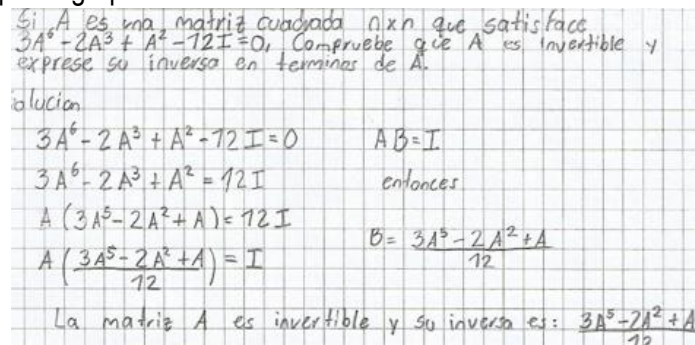 Si A es una matriz cuadrada nxn que satisface
3A⁶ - 2A³ + A² - 12I = 0, Compruebe que A es invertible y
exprese su inversa en terminos de A.
olucion
3A⁶ - 2A³ + A² - 12I = 0
AB = I
3A⁶ - 2A³ + A² = 12I
entonces
A (3A⁵ - 2A² + A) = 12I
B = 3A⁵ - 2A² + A / 12
A (3A⁵ - 2A² + A / 12) = I
La matriz A es invertible y su inversa es: 3A⁵ - 2A² + A / 12